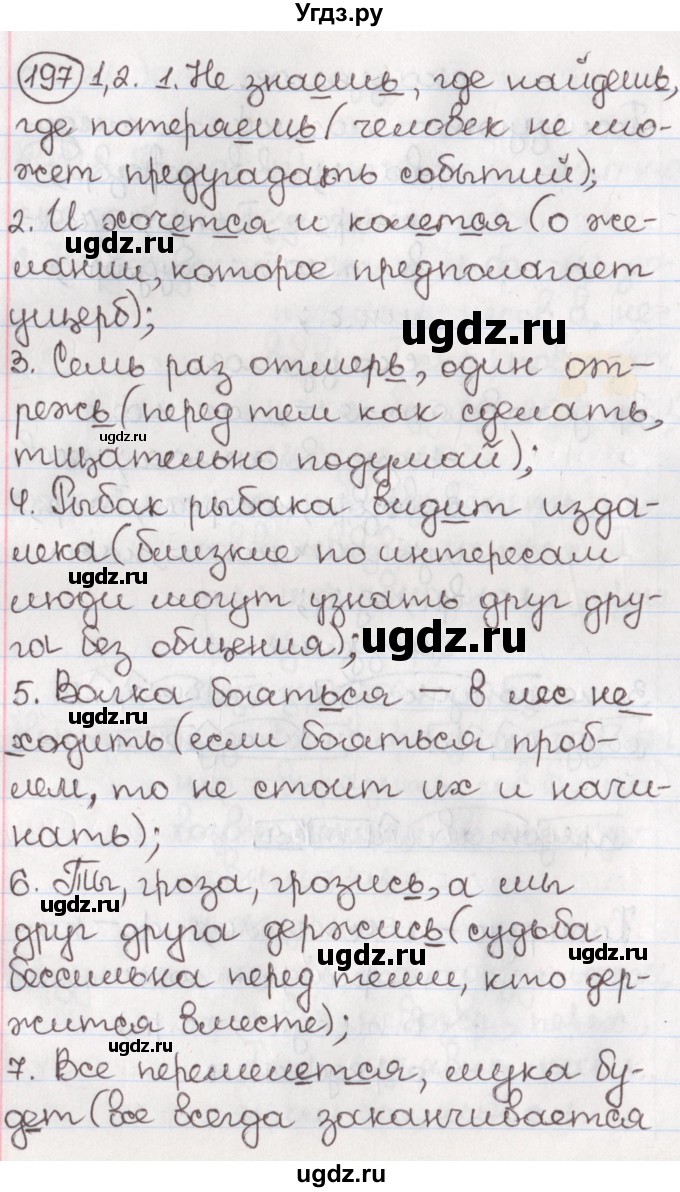 Угдз.ру
197 1,2. 1. Не знаешь, где найдешь,
где потеряешь (человек не мо-
жет предугадать событий);
2. И хочется и колется (о же-
ugdz.ru
лании, которое предполагает
ugdz.ru
ущерб);
3. Семь раз отмерь, один от-
режь (перед тем как сделать,
ugdz.ru
тщательно подумай);
4. Рыбак рыбака видит изда-
лека (близкие по интересам
ugdz.ru
люди могут узнать друг дру-
га без общения);
ugdz.ru
5. Волка бояться — в лес не
ugdz.ru
ходить (если бояться проб-
лем, то не стоит их и начи-
нать);
6. Ты, гроза, грозись, а мы
ugdz.ru
друг друга держись (судьба
ugdz.ru
ugdz.ru
бессильна перед теми, кто дер-
жится вместе);
ugdz.ru
7. Все перемелется, мука бу-
дет (все всегда заканчивается
ugdz.ru